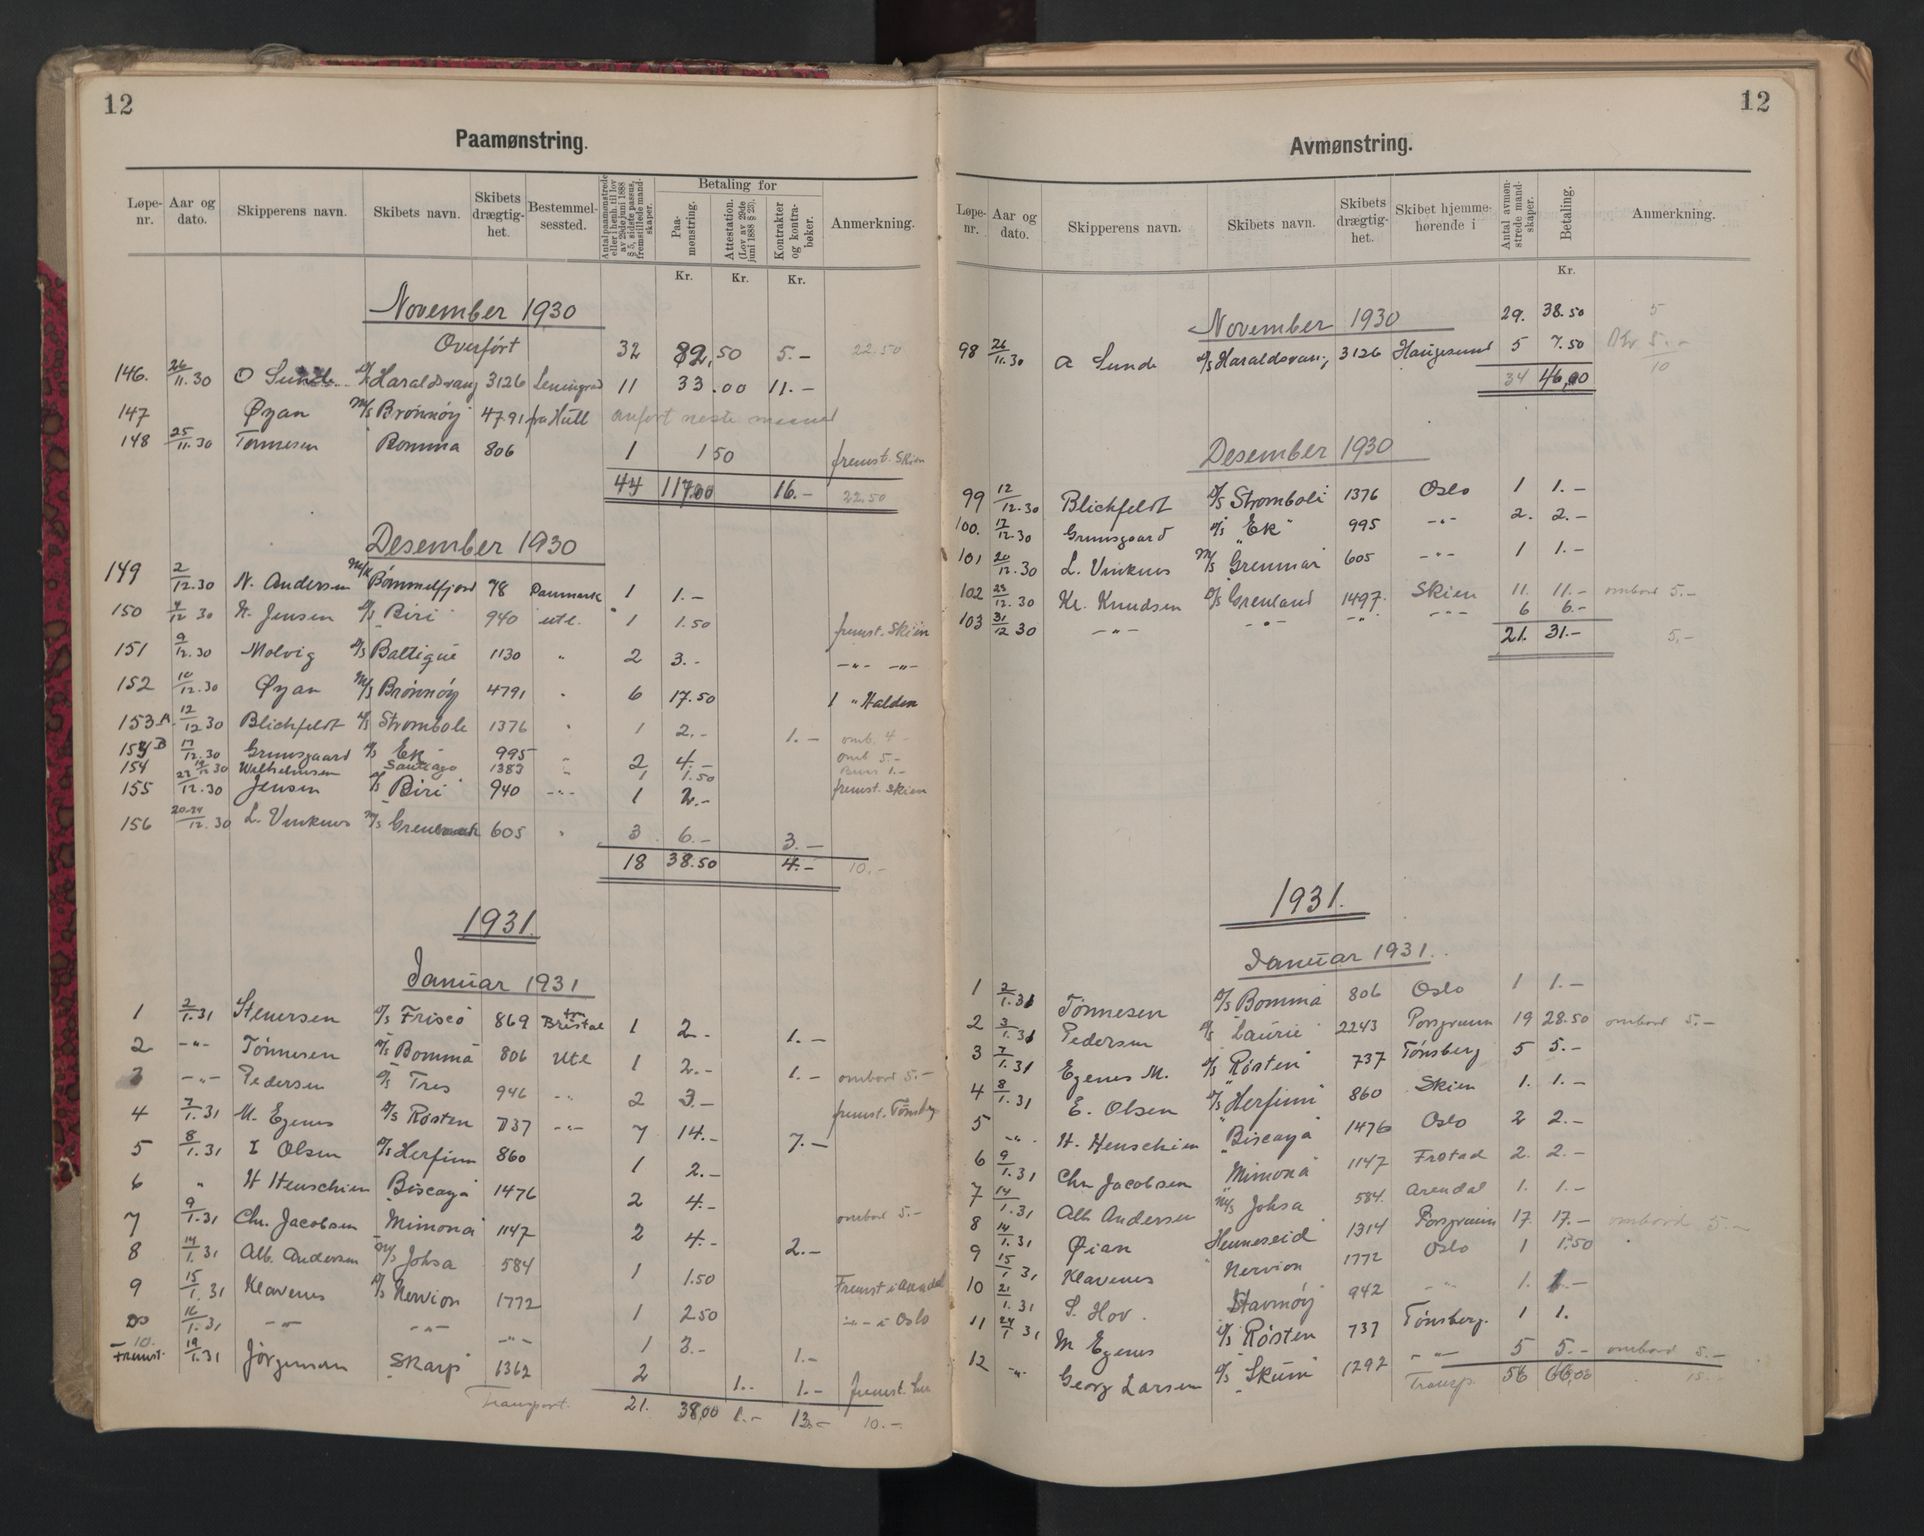 12
Paamønstring.
Løpe-nr. Aar og dato. Skipperens navn. Skibets navn. Skibets drægtig-het. Bestemmel-sessted. Antal paamønstrede eller i henh. til lov av 29de juni 1888 § 5, sidste passus, fremstillede mand-skaper. Betaling for Paa-mønstring. Attestation. (Lov av 29de juni 1888 § 23). Kontrakter og kontra-bøker. Anmerkning.
Kr. Kr. Kr.
November 1930
Overført 32 82,50 5.- 22.50
146. 26/11.30 O Sunde D/S Haraldsvang 3126 Leningrad 11 33.00 11.-
147 Øyan M/S Brønnøy 4791 fra Hull anført neste maaned
148 25/11.30 Tønnesen Bomma 806 1 1 50 fremst. Skien
44 117.00 16.- 22.50
Desember 1930
149 2/12.30 N. Andersen M/K Bømmelfjord 78 Danmark 1 1.-
150 4/12 30 H. Jensen D/S Biri 940 utl. 1 1.50 fremst. Skien
151 9/12.30 Molvig D/S Baltique 1130 " 2 3.- -"- -"-
152 10/12.30 Øyan M/S Brønnøy 4791 " 6 17.50 1 " Halden
153 A. 12/12 30 Blichfeldt D/S Strombole 1376 " 1 2.- 1.- omb. 4-
153 B 17/12.30 Grunsgaard D/S Ek 995 " 2 4.- omb 5.-
154 19/12 30 Wilhelmsen Santiago 1383 " 1 1.50
155 22/12.30 Jensen D/S Biri 940 -"- 1 2.- fremst. Skien
156 20-24/12.30 L. Vinknes M/S Grenmar 605 " 3 6.- 3.-
18 38.50 4.- 10.-
1931.
Januar 1931
1 2/1.31 Stenersen D/S Frisco 869 Bristol 1 2.- 1.-
2 -"- Tønnesen D/S Bomma 806 Utl 1 2.- 1.- ombord 5.-
3 -"- Pedersen D/S Tres 946 -"- 2 3.- fremst. Tønsberg
4 7/1.31 M. Egenes D/S Røsten 737 -"- 7 14.- 7.-
5 8/1.31 E Olsen D/S Herfinn 860 1 2.-
6 " H Henschien Biscaya 1476 2 4.- ombord 5.-
7 9/1.31 Chr. Jacobsen Mimona 1147 2 4.- 2.-
8 14/1.31 Alb. Andersen M/S Johsa 584 1 1.50 Fremst i Arendal
9 15/1.31 Klavenes D/S Nervion 1772 1 2.50 -"- i Oslo
16/1.31 -"- -"- -"- 1 3.- 1.-
10. Fremst. 19/1.31 Jørgensen Skarp 1362 2 1.- 1.- fremst.
Transport. 21. 38,00 1.- 13.- 10.-
12
Avmønstring.
Løpe-nr. Aar og dato. Skipperens navn. Skibets navn. Skibets drægtig-het. Skibet hjemme-hørende i Antal avmøn-strede mand-skaper. Betaling. Anmerkning.
Kr.
November 1930 29. 38.50 5
98 26/11.30 A Sunde D/S Haraldsvang 3126 Haugesund 5 7.50 5.-
34 46,00 10
Desember 1930
99 12/12.30 Blichfeldt D/S Stromboli 1376 Oslo 1 1.-
100. 17/12.30 Grunsgaard D/S "Ek" 995 -"- 2. 2.-
101 20/12.30 L. Vinknes M/S Grenmar 605 -"- 1 1.-
102 23/12.30 Kr. Knudsen D/S Grenland 1497 Skien 11. 11.- ombord 5.-
103 31/12 30 -"- -"- -"- -"- 6 6.-
21. 31.- 5.-
1931.
Januar 1931.
1 2/1.31 Tønnesen D/S Bomma 806 Oslo 1 1.-
2 3/1.31 Pedersen D/S Laurie 2243 Porsgrunn 19 28.50 ombord 5.-
3 7/1.31 Egenes M. D/S Røsten 737 Tønsberg 5 5.-
4 8/1.31 E. Olsen D/S "Herfinn" 860 Skien 1. 1.-
5 -"- H. Henschien "Biscaya" 1476 Oslo 2 2.-
6 9/1.31 Chr Jacobsen "Mimona" 1147 Frstad 2. 2.-
7 14/1.31 Alb Andersen M/S Johsa 584. Arendal 1. 1.-
8 14/1.31 Øian Henneseid 1314 Porsgrunn 17. 17.- ombord 5.-
9 15/1 31 Klavenes Nervion 1772 Oslo 1 1.50
10 21/1.31 S. Hov. Stavnøy 942 -"- 1. 1.-
11 24/1 31 M Egenes D/S Røsten 737 Tønsberg. 1 1.
12 -"- Georg Larsen D/S "Skum" 1292 -"- 5 5.- ombord 5.-
Transp. 56 66,00 15.-